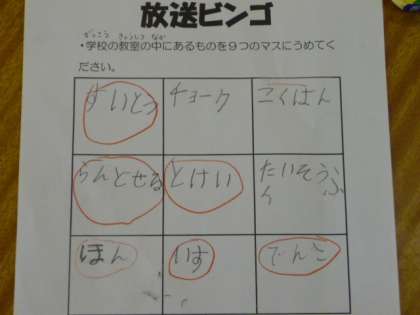 放送ビンゴ
がっこう きょうしつ なか
・学校の教室の中にあるものを９つのマスにうめてく
ださい。
すいとう
チョーク
こくばん
らんどせる
とけい
たいそうふ
く
ほん
いす
でんき